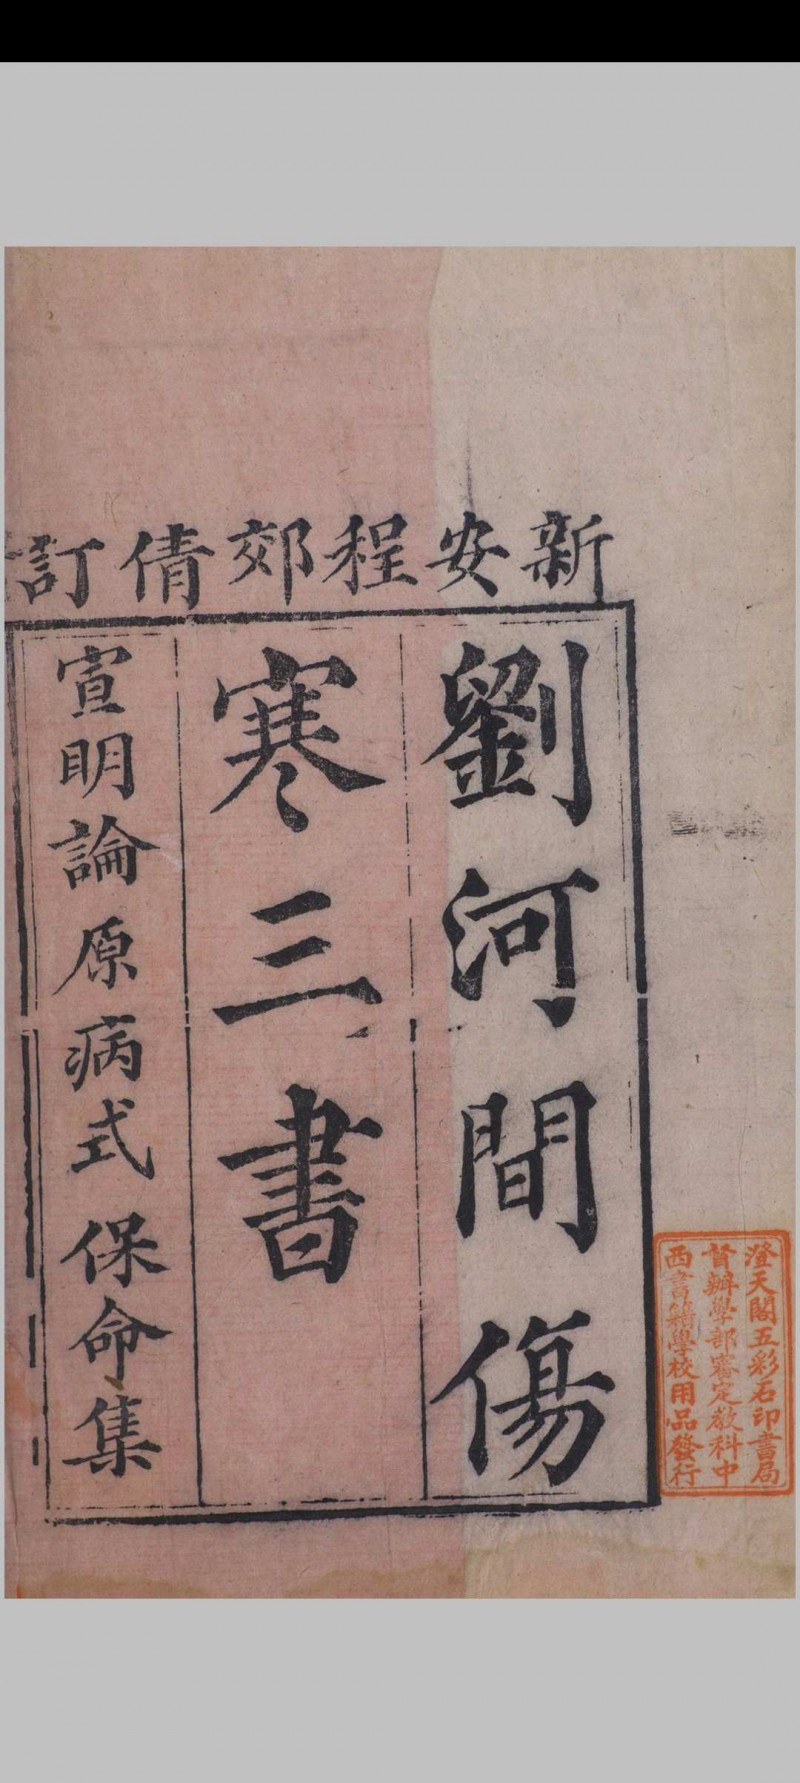 新安程郊倩訂
劉河間傷
寒三書
宣明論 原病式 保命集
澄天閣五彩石印書局
督辦學部審定教科中
西書籍學校用品發行